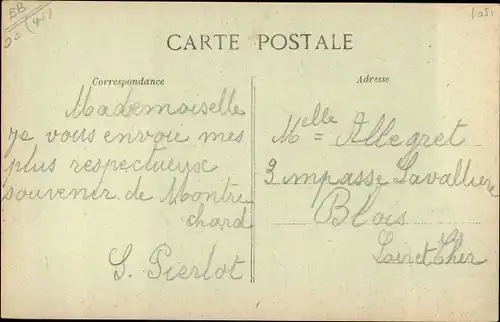 BB
(41)
1051
CARTE POSTALE
Correspondance
Mademoiselle
je vous envoie mes
plus respectueux
souvenir de Montri
chard
S. Pierlot
Adresse
Melle Allegret
3 impasse Lavalliere
Blois
Loir et Cher